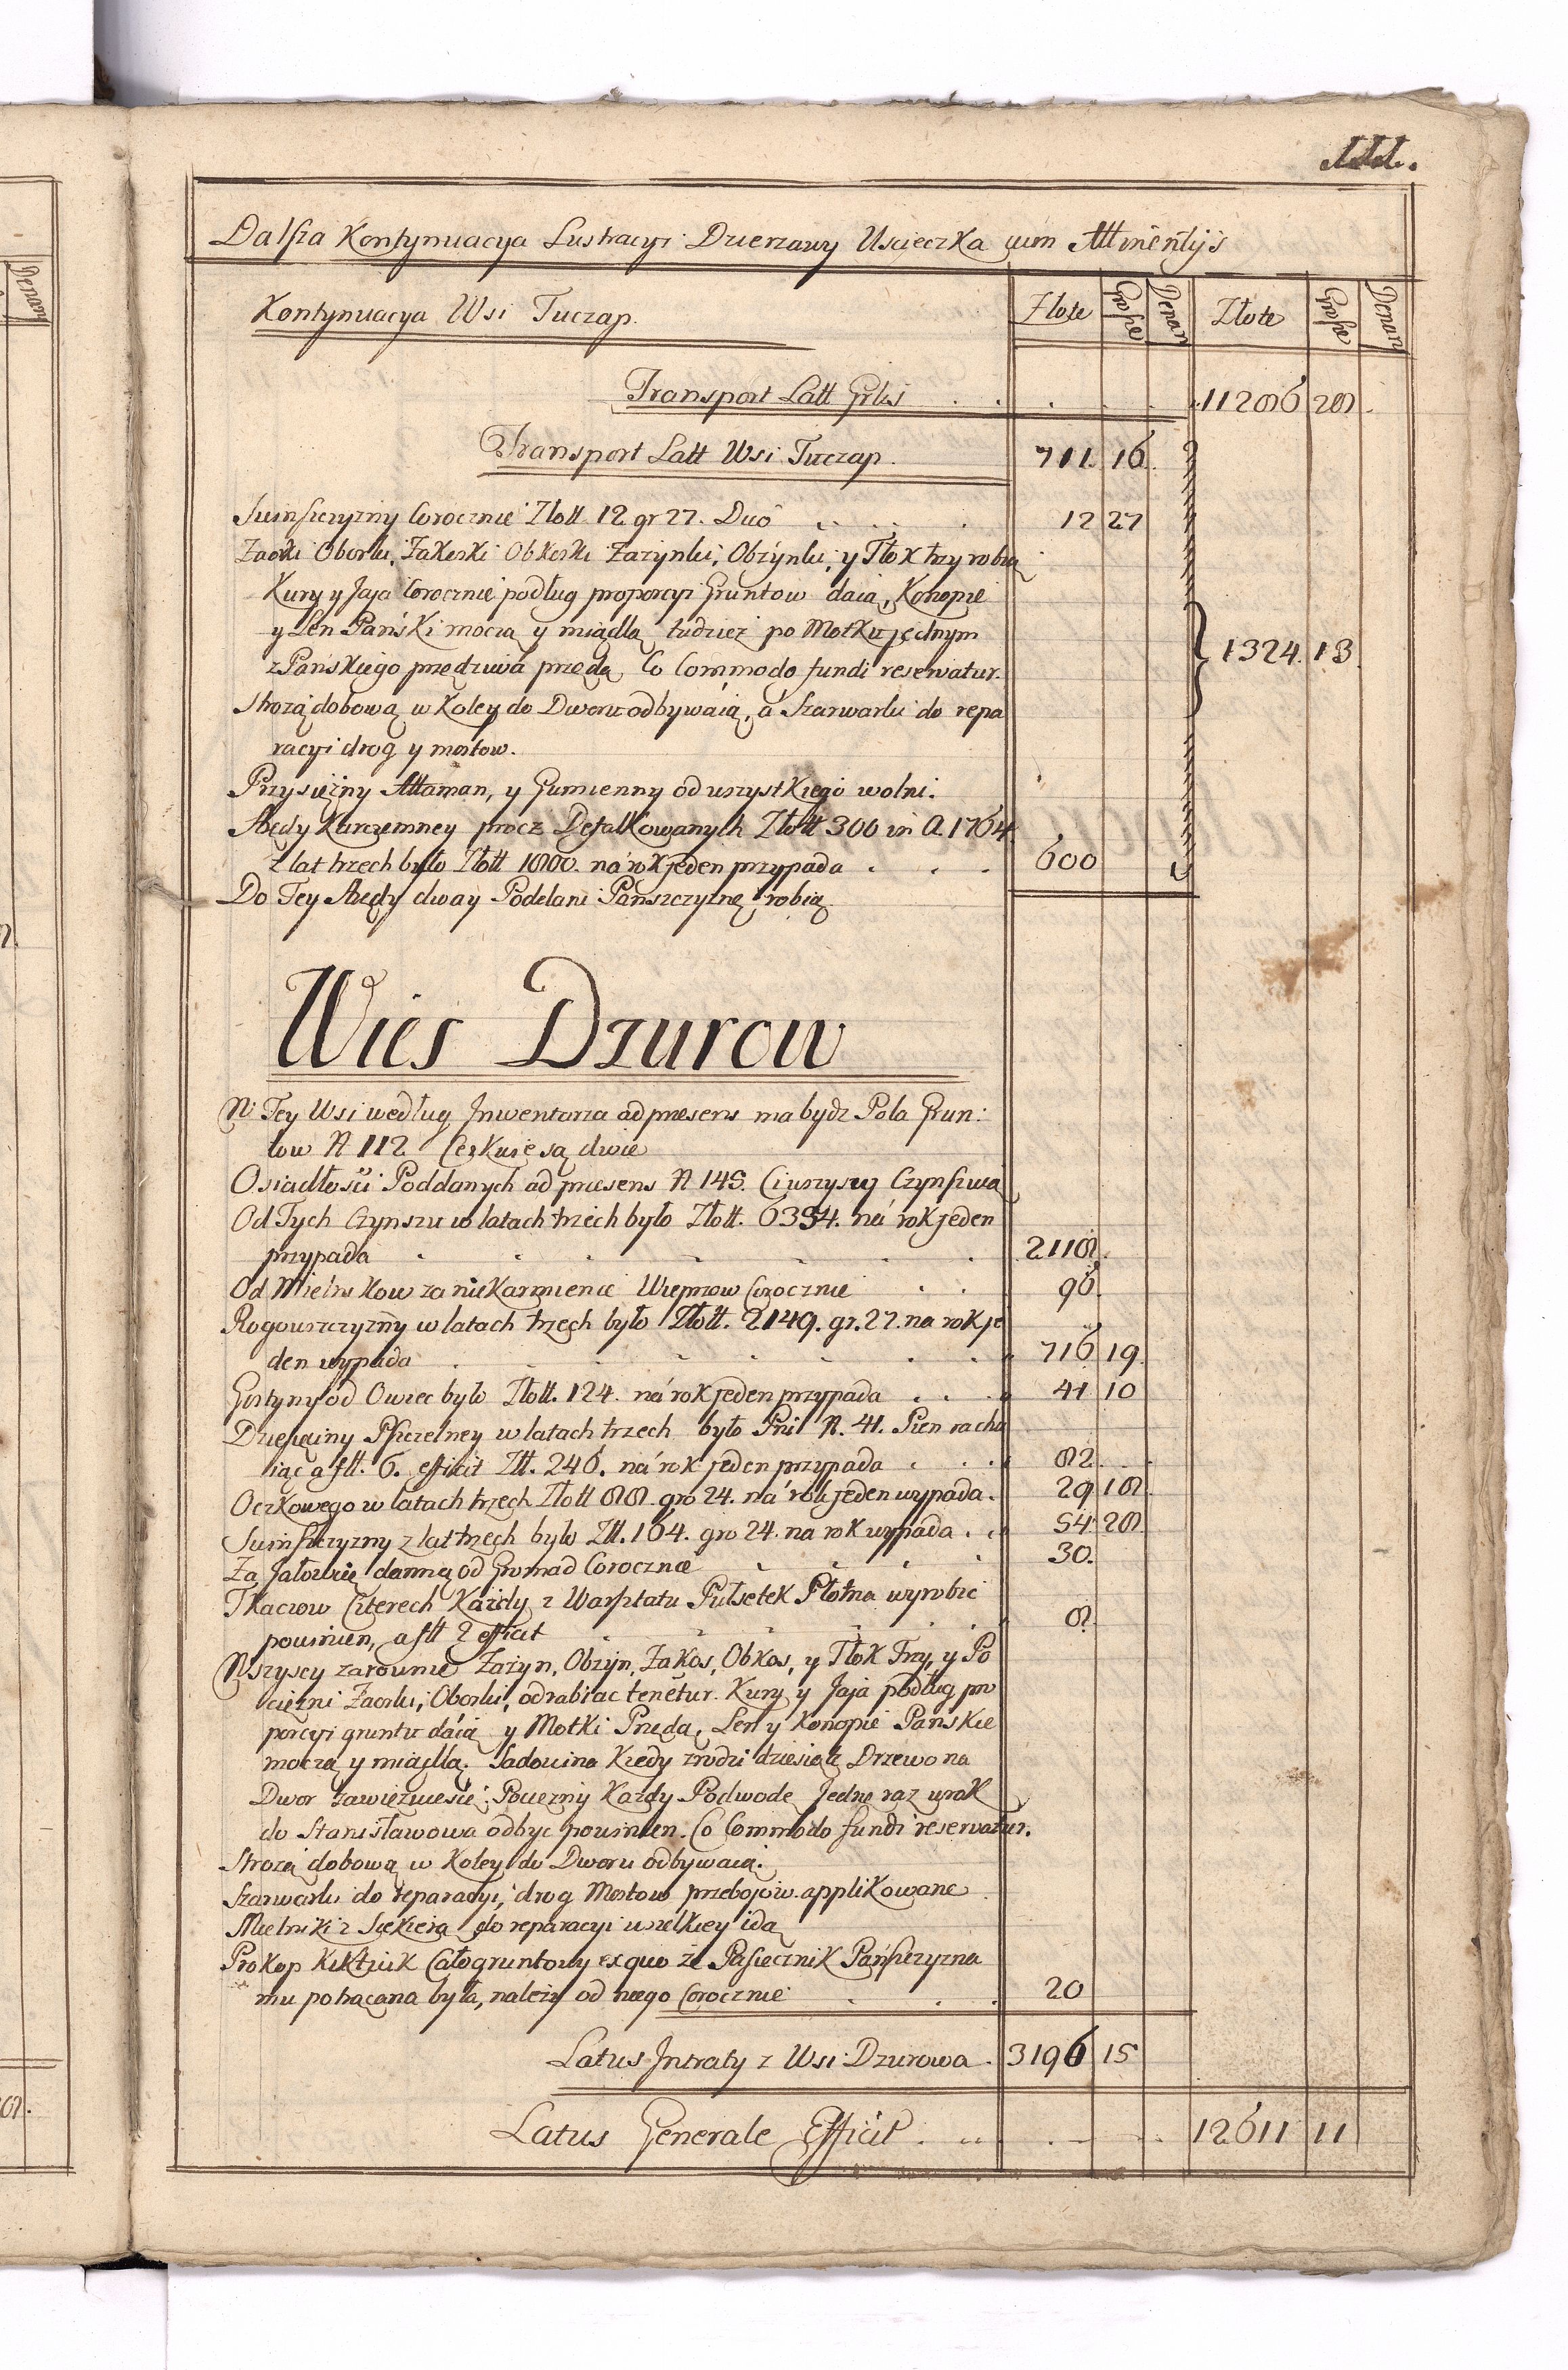 Dalsza Kontynuacya Lustracyi Dzierzawy Uscieczka cum Attinentijs
Kontynuacya Wsi Tuczap.
Złote Grosze Denar Złote Grosze Denar
Transport Latt Grlis . . . . . 11286 28.
Transport Latt Wsi Tuczap. 711. 16.
Suinszczyzny Corocznie Złott 12 gr 27. Duo . . . 12 27
Zaorki Oborki, Zakoski Obkoski Zazynki, Obzynki, y Tłok trzy robią
Kury y Jaja Corocznie podług proporcyi Gruntow daią, Konopie
y Len Pański moczą y miądlą tudziez po Motku jednym
z Pańskiego przędziwa przędą Co Commodo fundi reservatur.
1324. 13
Strozą dobową w Koley do Dworu odbywaią, a Szarwarki do repa
racyi drog y mostow.
Przysiężny Attaman, y Gumienny od wszystkiego wolni.
Arędy Karczemney procz Defalkowanych Złott 300 in A. 1764
z lat trzech było Złott 1800. na rok jeden przypada . . . 600
Do Tey Arędy dway Poddani Panszczyznę robią
Wies Dzurow
W Tey Wsi według Inwentarza ad praesens ma bydz Pola Grun:
tow N 112 Cerkwie są dwie
Osiadłosci Poddanych ad praesens N 145. Ci wszyscy Czynszuią
Od Tych Czynszu w latach trzech było Złott. 6354. na rok jeden
przypada . . . . . . . 2118.
Od Mielnikow za niekarmienie Wieprzow Corocznie . . 96.
Rogowszczyzny w latach trzech było Złott. 2149. gr. 27. na rok je
den wypada . . . . . . . 716 19
Gostyny od Owiec było Złott. 124. na rok jeden przypada . . . 41 10
Dziesięciny Pszczelney w latach trzech było Pni N. 41. Pien racho
iąc a fltt. 6. efficit Złt. 246. na rok jeden przypada . . . 82.
Oczkowego w latach trzech Złott 88. gro 24. na rok jeden wypada. 29 18.
Suinszczyzny z lat trzech było Złt. 164. gro 24. na rok wypada . . 54 28
Za Jałowicę danną od Gromad Corocznie . . . 30.
Tkaczow Czterech Kazdy z Warsztatu Pułsetek Płotna wyrobic
powinien, a fltt 2 efficit . . . . . 8.
Wszyscy zarownie Zazyn, Obzyn, Zakos, Obkos, y Tłok Trzy, y Po
ciezni Zaorki, Oborki, odrabiac tenētur. Kury y Jaja podług pro
porcyi gruntu daią y Motki Przędą, Len y Konopie Panskie
moczą y miądlą. Sadowina Kiedy zrodzi dziesiąte Drzewo na
Dwor zawiezuiesie. Pociezny Kazdy Podwodę Jednę raz w rok
do Stanisławowa odbyc powinien. Co Commodo fundi reservatur.
Strozą dobową w Koley do Dworu odbywaią.
Szarwarki do reparacyi, drog Mostow przebojow applikowane
Mielniki z Siekierą do reparacyi wszelkiey idą
Prokop Całogruntowy ex quo ze Pasiecznik Pańszczyzna
mu potrącana była, nalezy od niego Corocznie . . . 20
Latus Intraty z Wsi Dzurowa . 3196 15
Latus Generale Efficit . . . . . 12611 11